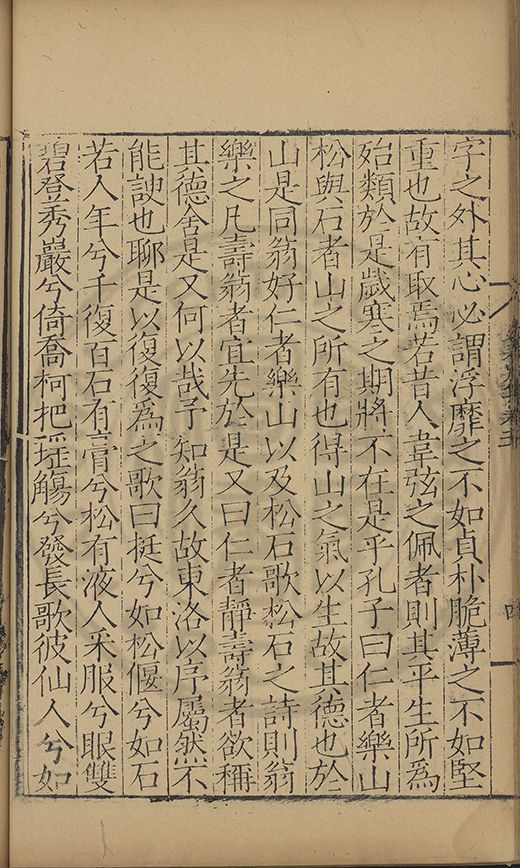 字之外其心必謂浮靡之不如貞朴脆薄之不如堅
重也故有取焉若昔人韋弦之佩者則其平生所爲
殆類於是歲寒之期將不在是乎孔子曰仁者樂山
松與石者山之所有也得山之氣以生故其德也於
山是同翁好仁者樂山以及松石歌松石之詩則翁
樂之凡壽翁者宜先於是又曰仁者靜壽翁者欲稱
其德舍是又何以哉予知翁久故東洛以序屬然不
能諛也聊是以復復爲之歌曰挺兮如松偃兮如石
若人年兮千復百石有膏兮松有液人采服兮眼雙
碧登秀巖兮倚喬柯把瑤觴兮發長歌彼仙人兮如
四